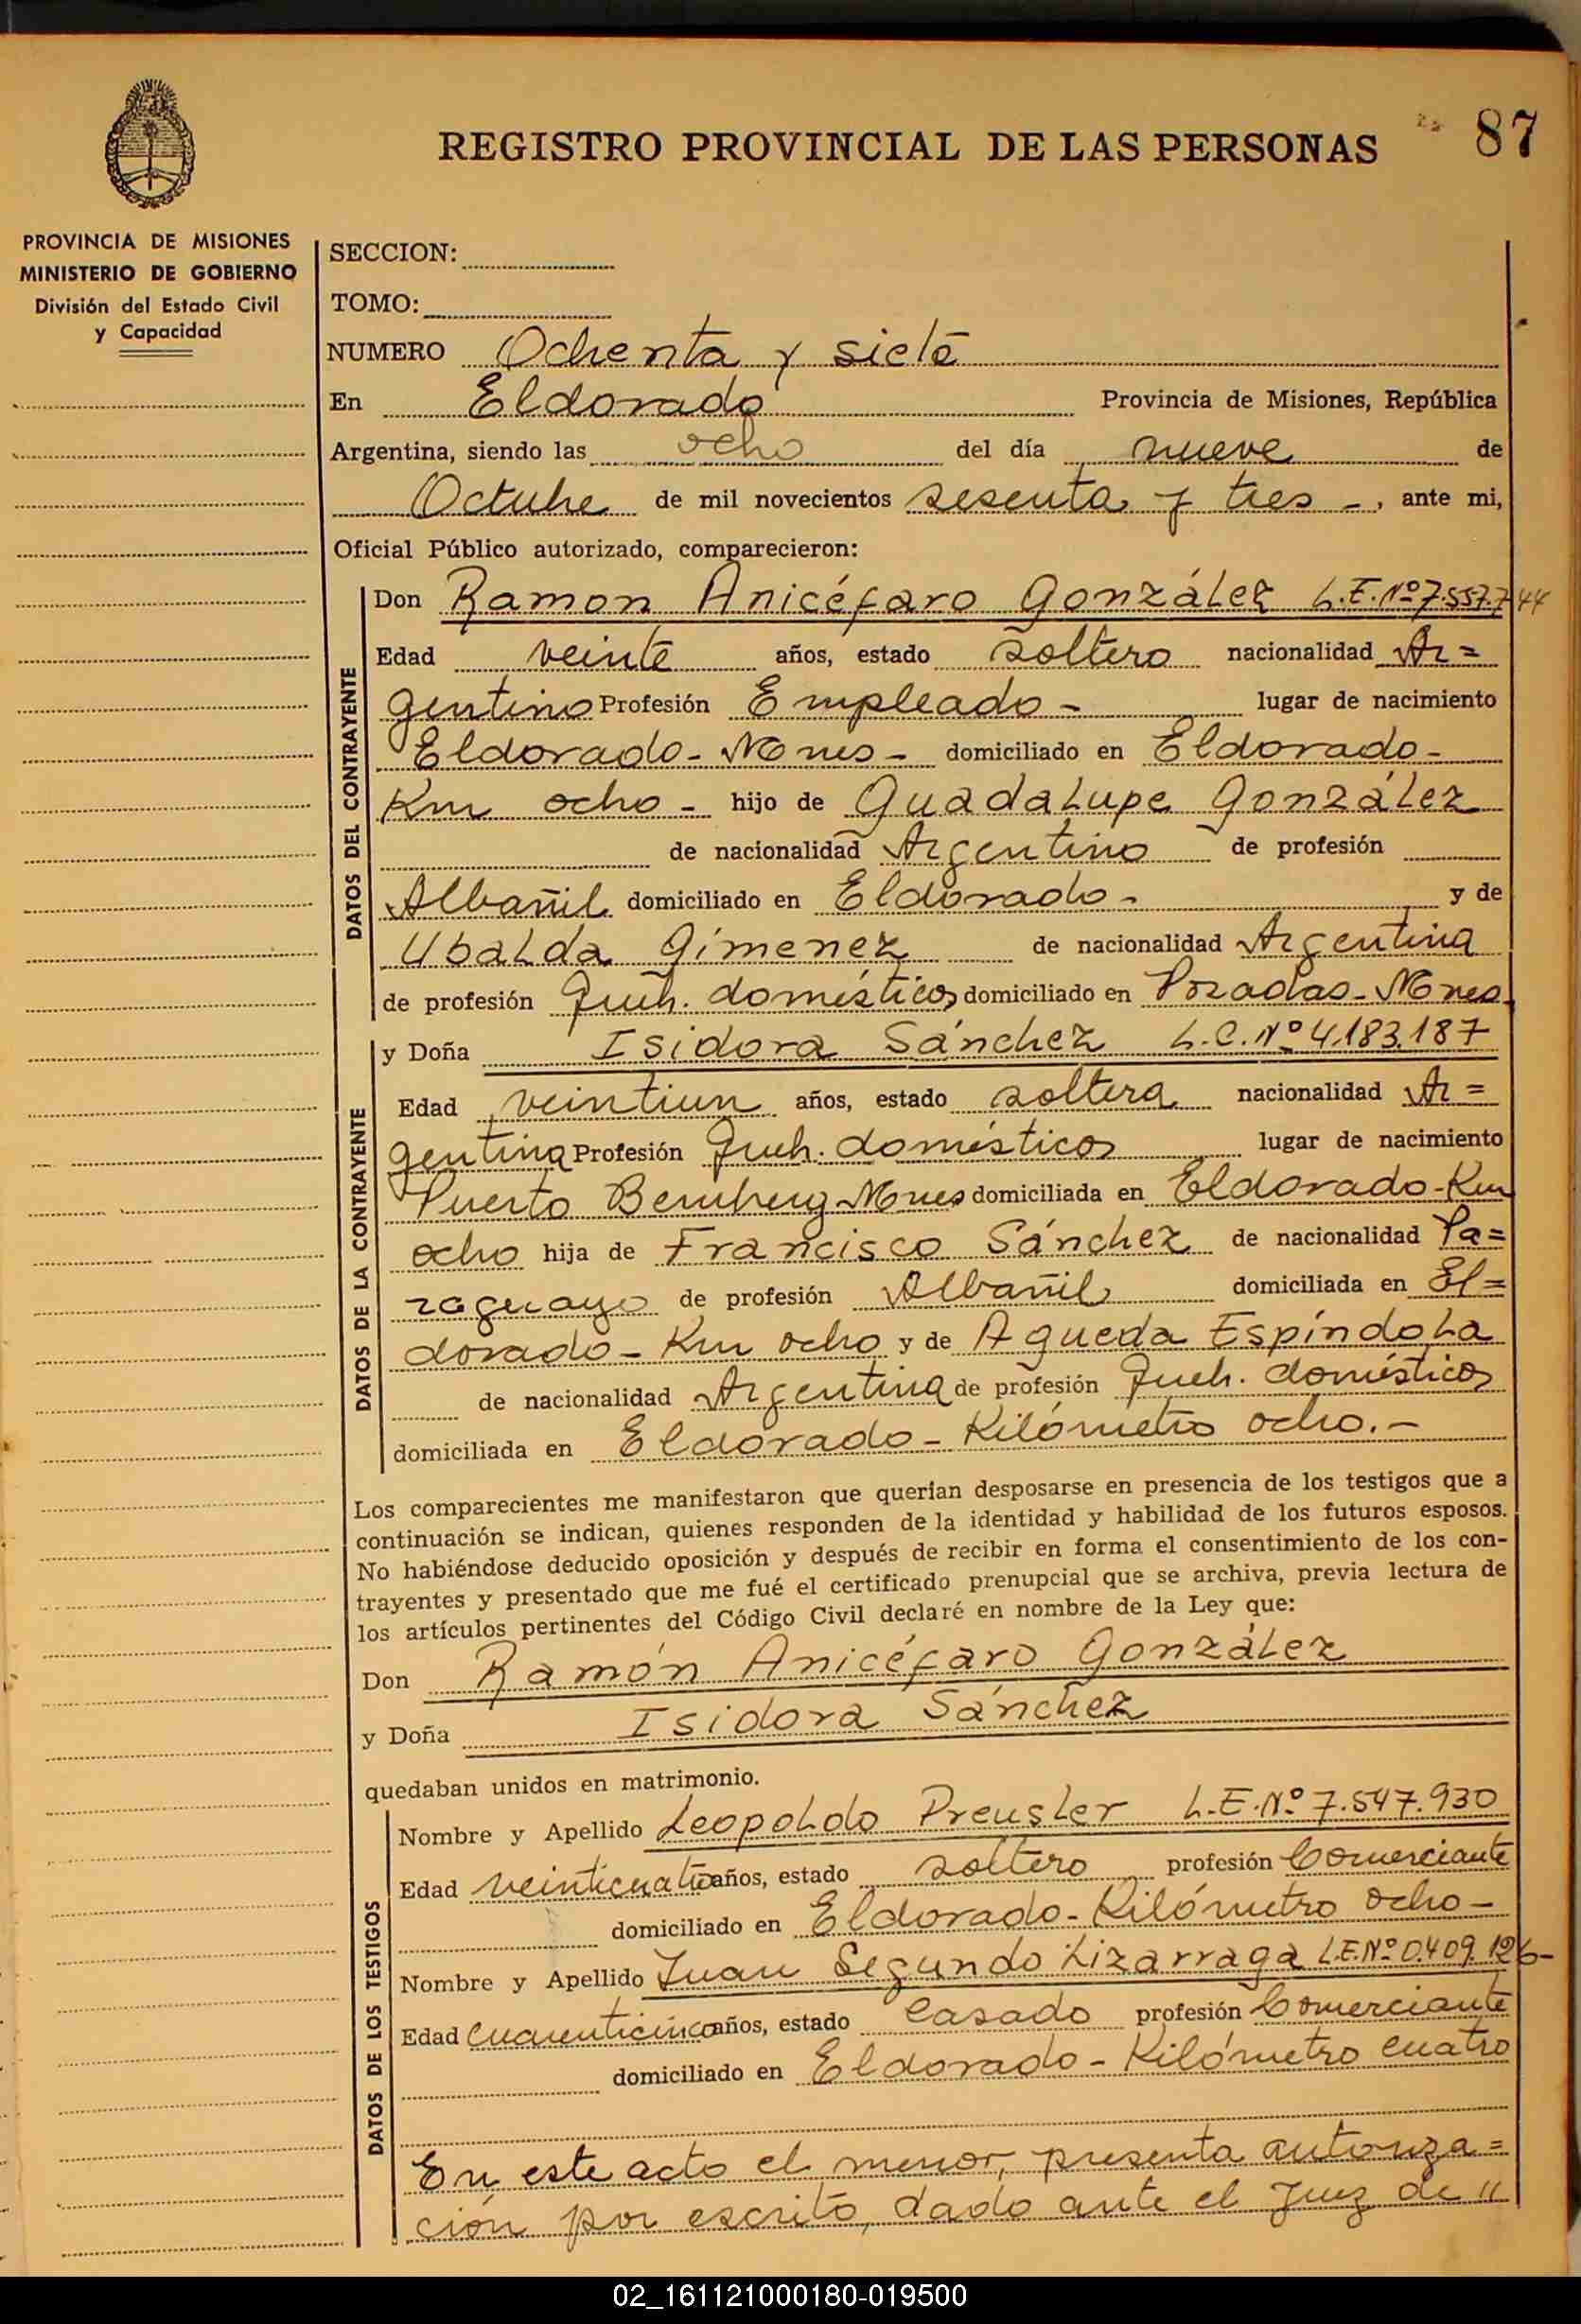 REGISTRO PROVINCIAL DE LAS PERSONAS 87
PROVINCIA DE MISIONES
MINISTERIO DE GOBIERNO
División del Estado Civil
y Capacidad
SECCION:
TOMO:
NUMERO Ochenta y siete
En Eldorado Provincia de Misiones, República
Argentina, siendo las ocho del día nueve de
Octubre de mil novecientos sesenta y tres -, ante mi,
Oficial Público autorizado, comparecieron:
DATOS DEL CONTRAYENTE
Don Ramon Anicéfaro González L.E.Nº7.557.744
Edad veinte años, estado soltero nacionalidad Ar=
gentino Profesión Empleado - lugar de nacimiento
Eldorado - Mnes - domiciliado en Eldorado -
Km ocho - hijo de Guadalupe González
de nacionalidad Argentino de profesión
Albañil domiciliado en Eldorado - y de
Ubalda Gimenez de nacionalidad Argentina
de profesión Queh. domésticos domiciliado en Posadas - Mnes
DATOS DE LA CONTRAYENTE
y Doña Isidora Sánchez L.C.Nº 4.183.187
Edad veintiun años, estado soltera nacionalidad Ar=
gentina Profesión Queh. domésticos lugar de nacimiento
Puerto Bemberg Mnes domiciliada en Eldorado - Km
ocho hija de Francisco Sánchez de nacionalidad Pa=
raguayo de profesión Albañil domiciliada en El=
dorado - Km ocho y de Agueda Espíndola
de nacionalidad Argentina de profesión Queh. domésticos
domiciliada en Eldorado - Kilómetro ocho. -
Los comparecientes me manifestaron que querían desposarse en presencia de los testigos que a
continuación se indican, quienes responden de la identidad y habilidad de los futuros esposos.
No habiéndose deducido oposición y después de recibir en forma el consentimiento de los con-
trayentes y presentado que me fué el certificado prenupcial que se archiva, previa lectura de
los artículos pertinentes del Código Civil declaré en nombre de la Ley que:
Don Ramón Anicéfaro González
y Doña Isidora Sánchez
quedaban unidos en matrimonio.
DATOS DE LOS TESTIGOS
Nombre y Apellido Leopoldo Preusler L.E.Nº 7.547.930
Edad veinticuatro años, estado soltero profesión Comerciante
domiciliado en Eldorado - Kilómetro ocho -
Nombre y Apellido Juan Segundo Lizarraga L.E.Nº 0.409.126 -
Edad cuarenticinco años, estado Casado profesión Comerciante
domiciliado en Eldorado - Kilómetro cuatro
En este acto el menor, presenta autoriza=
ción por escrito, dado ante el Juez de "
02_161121000180-019500